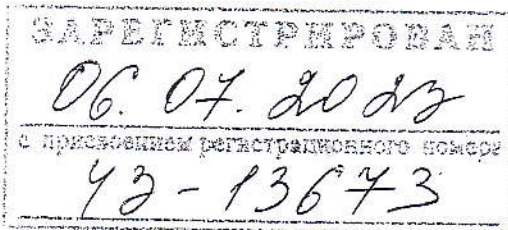 ЗАРЕГИСТРИРОВАН
06.07.2023
с присвоением регистрационного номера
43-13673